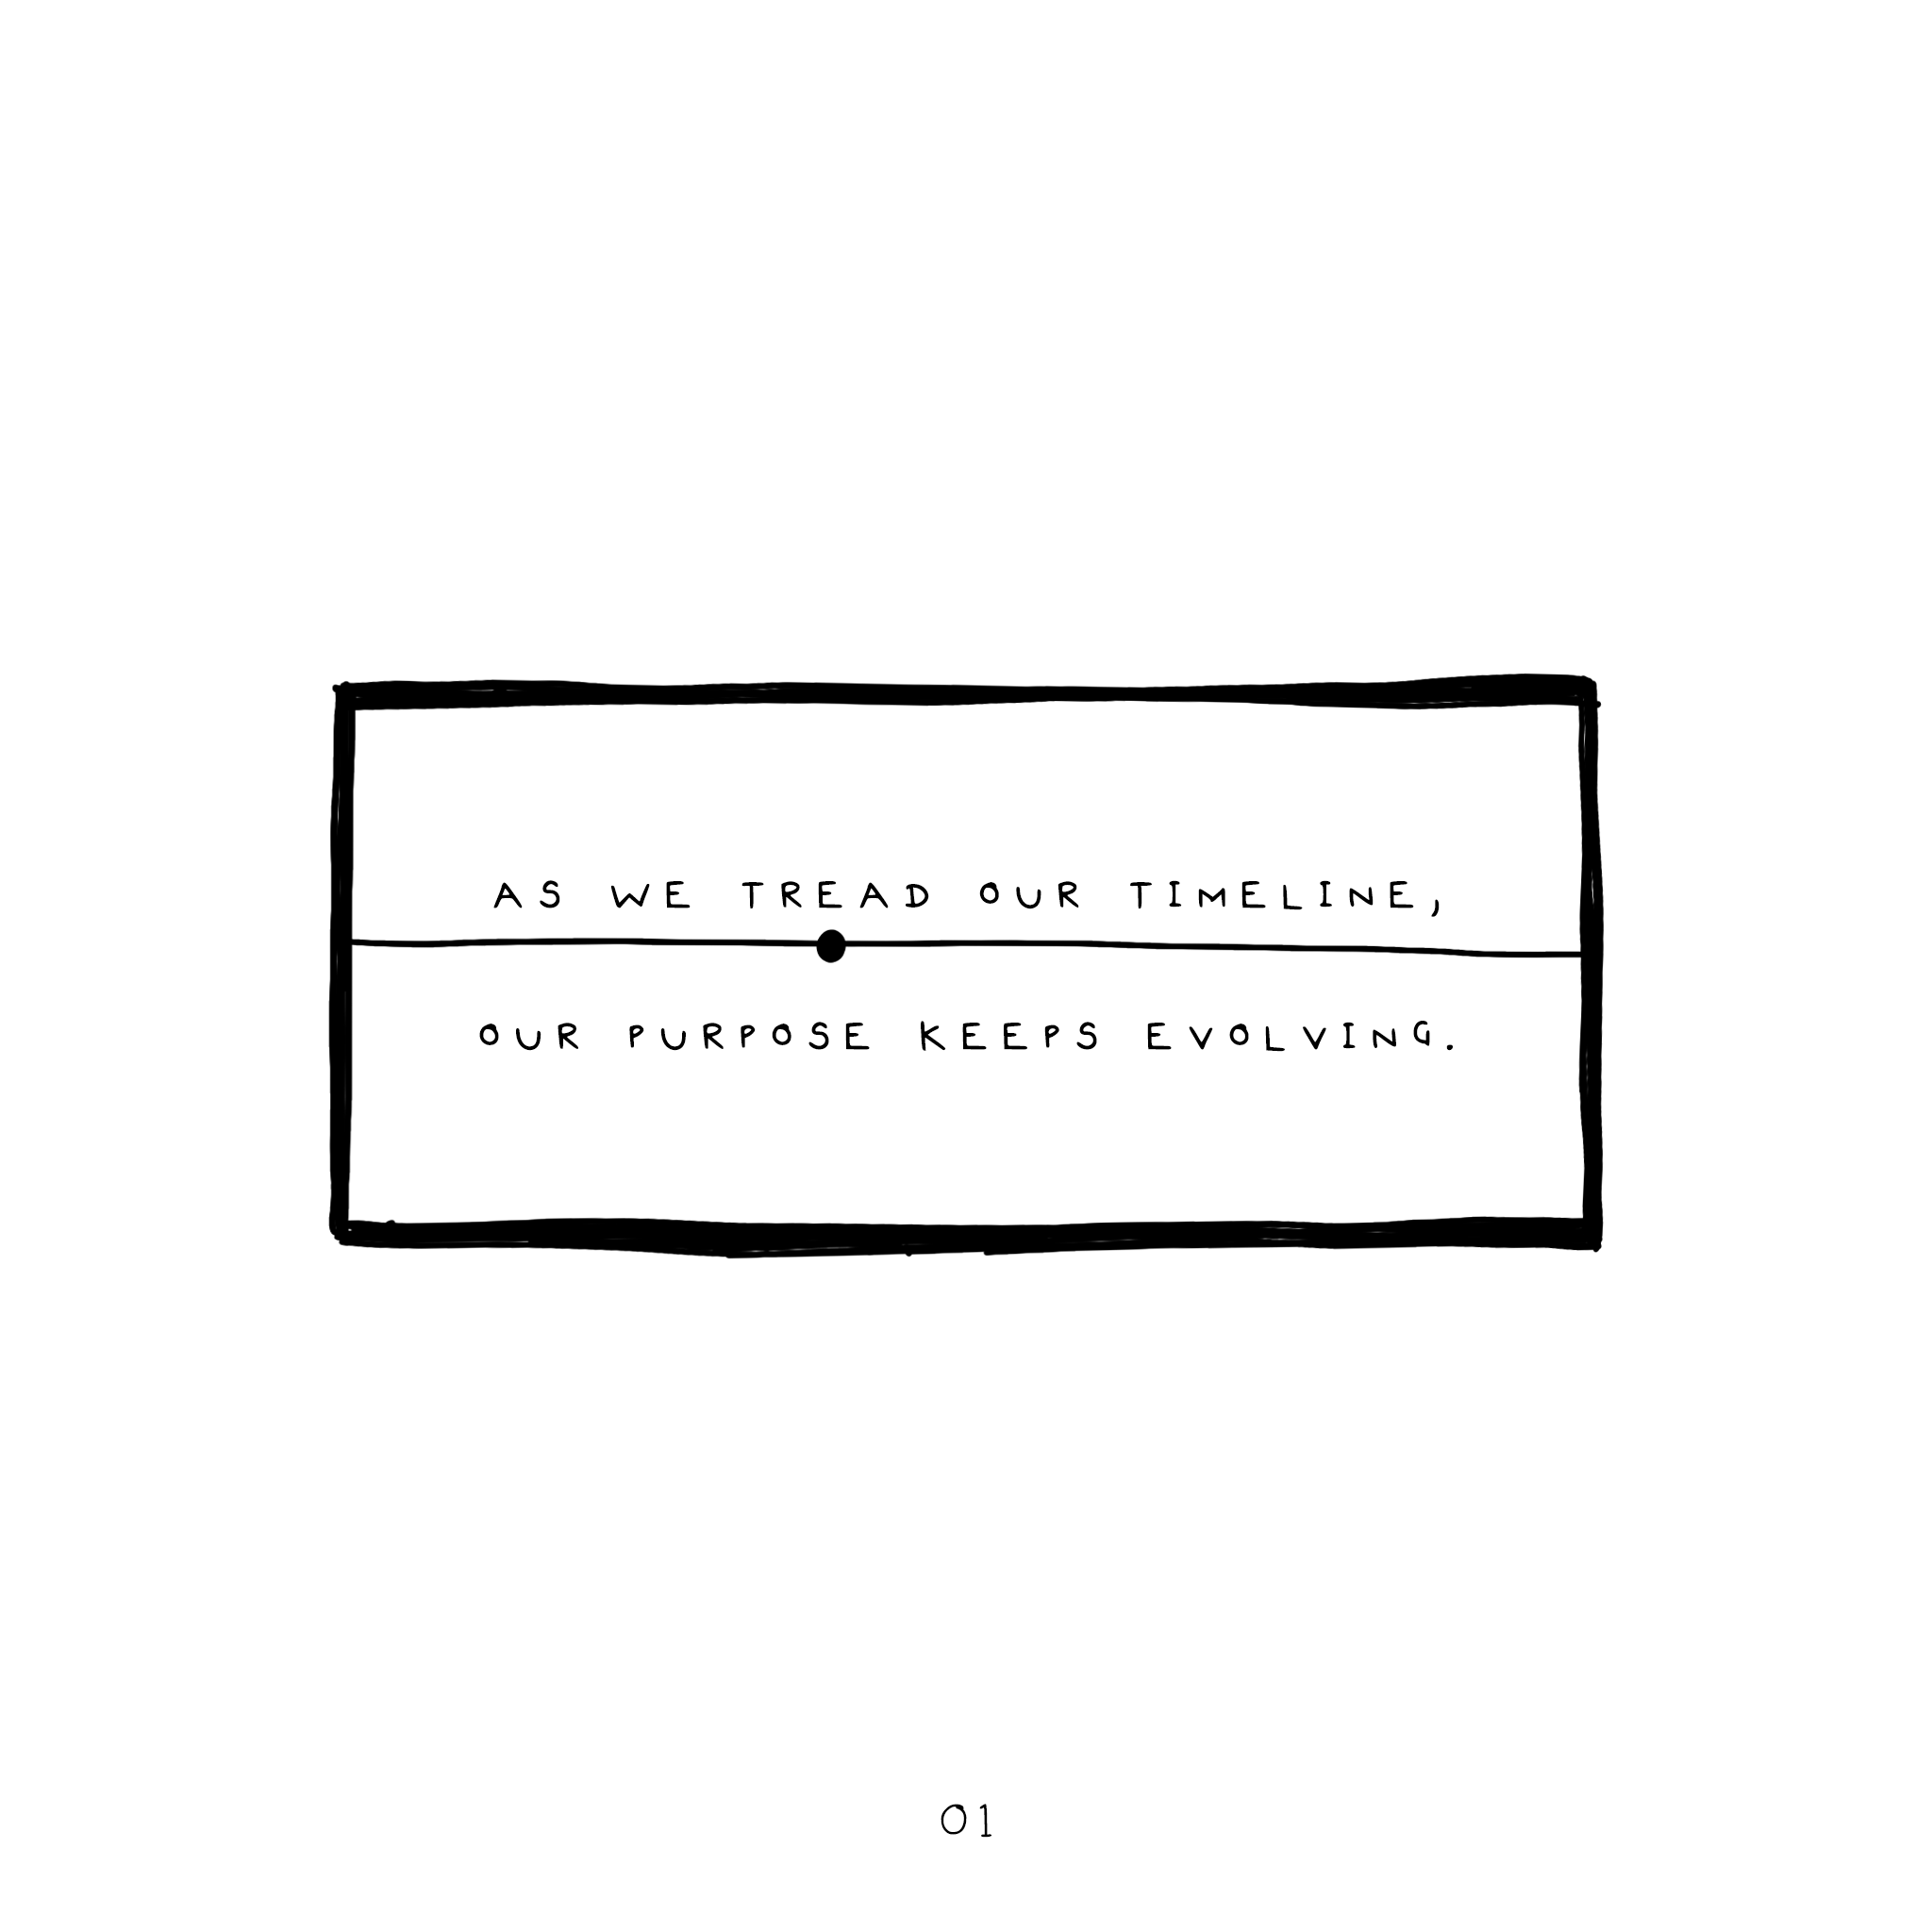 AS WE TREAD OUR TIMELINE,
OUR PURPOSE KEEPS EVOLVING.
01